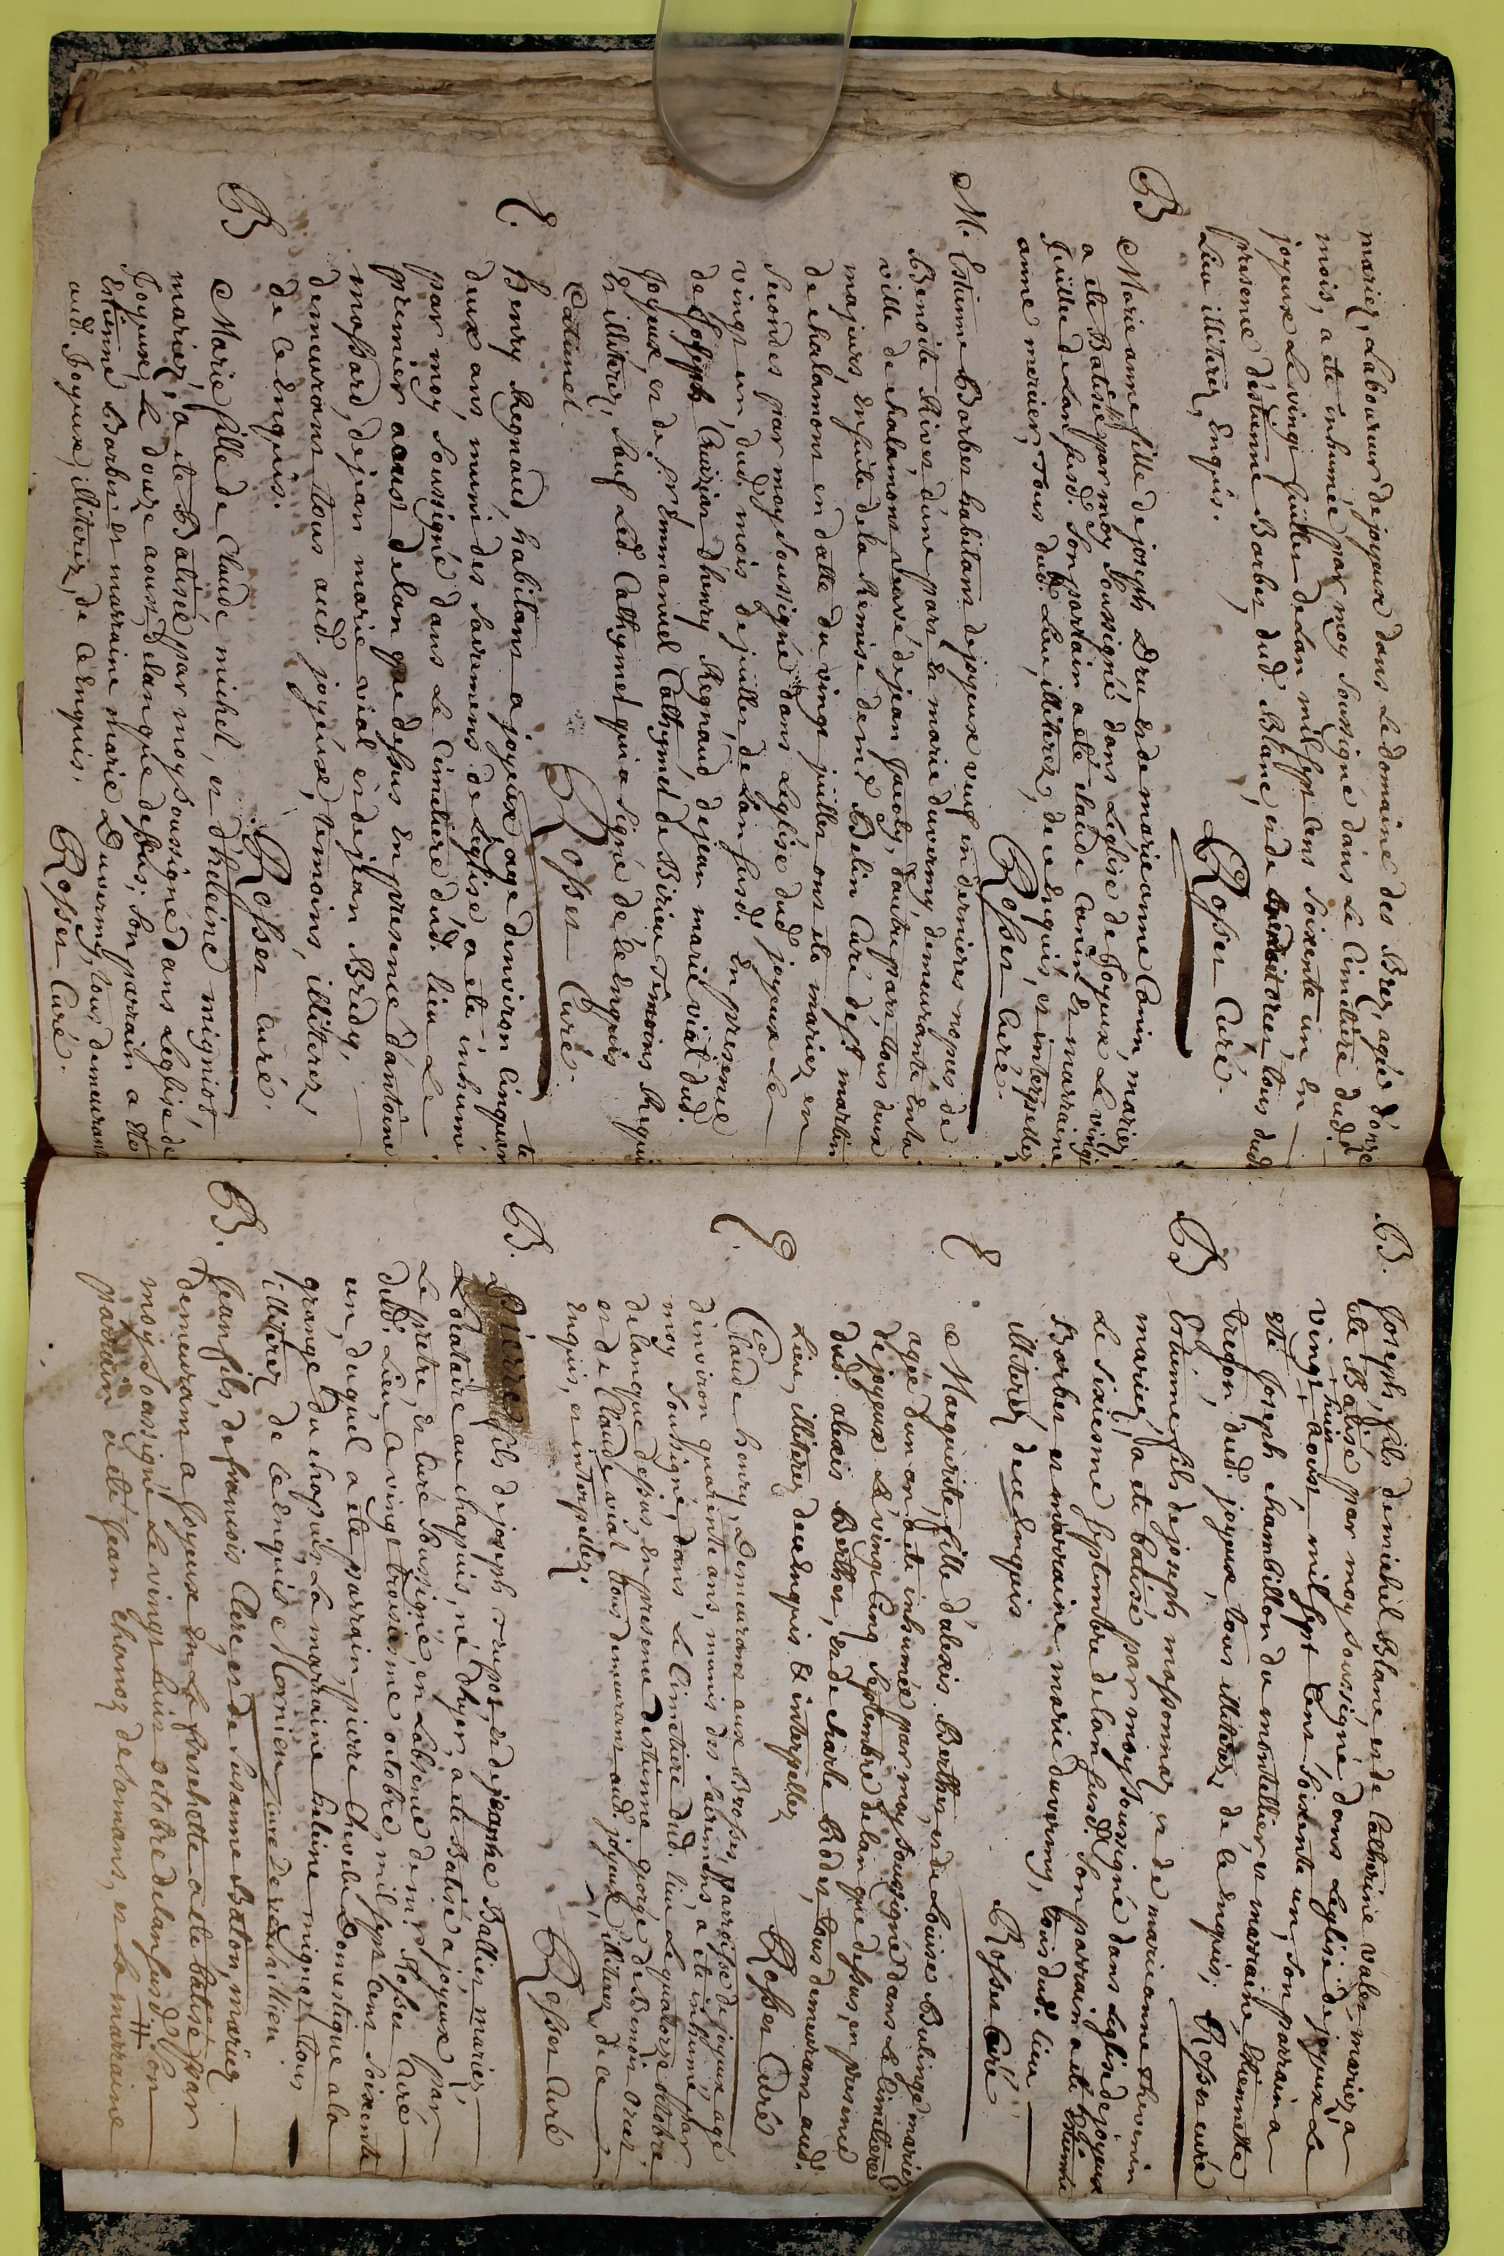 mariez, Laboureur de joyeux dans Le domaine des Brez, agée d'onze
mois, a eté inhumée par moy soussigné dans Le Cimetiere dud.
joyeux Le vingt juillet de Lan mil sept cens soixente un En
presence d'estienne Barbet dud. Blanc, et de tous dud.
Lieu illiterez, Enquis.
Rosser Curé.
B
Marie anne fille de joseph Dru et de marie anne Conin, mariez
a eté Batisée par moy soussigné dans L'eglise de Joyeux Le vingt
Juillet de Lan susd. Son parrain a eté claude Conin Et marraine
anne mercier, tous dud. Lieu, illiterez, de ce Enquis, et interpellez
Rosser Curé.
M. Estienne Barbet habitant de joyeux veuf en dernieres nopces de
Benoite Rivet d'une part Et marie duverney demeurante En la
ville de chalamont veuve de jean Jacoly, d'autre part tous deux
majeurs, Ensuite de la Remise de mr. Belin Curé dest martin
de chalamont en datte du vingt juillet ont eté mariez en
Secondes par moy soussigné dans L'eglise dud. joyeux Le
vingt un, dud. mois de juillet de Lan susd. En presence
de Joseph Cruizias d'henry Regnaud de jean marie vial dud.
Joyeux et de Sr. Emmanuel Cathymel de Birieu Temoins Requis
Et illiterez, Sauf Led. Cathymel qui a signé de ce Enquis
Catimel
Rosser Curé.
E.
henry Regnaud, habitant a joyeux agé d'environ cinquante
deux ans, muni des sacremens de L'eglise a eté inhumé
par moy soussigné dans Le Cimetiere dud. lieu Le
premier aout de lan que dessus En presence d'antoine
massard, de jean marie vial et de jean Bredy,
demeurans tous aud. joyeux, temoins, illitterez,
de ce Enquis.
Rosser Curé.
B
Marie fille de claude michel, et d'heleine migniot,
mariez, a eté Batisée par moy soussigné dans L'eglise de
Joyeux Le douze aout de lan que dessus; Son parrain a eté
Estienne Barbet et marraine marie Duverney, tous demeurant
aud. Joyeux, illiterez, de ce Enquis,
Rosser Curé.
B.
Joseph, fils de michel Blanc et de Catherine valet mariez, a
eté Batisé par moy soussigné dans L'eglise de joyeux Le
vingt huit aout, mil sept Cens Soixente un, Son parrain a
eté Joseph chambillon de montellier, et marraine, Etiennette
tregon, dud. joyeux tous illiterez, de ce Enquis,
Rosser curé
B
Estienne fils de joseph massonnet et de marie anne thevenin
mariez, a eté batisé par moy soussigné dans L'eglise de joyeux
Le Sixiesme septembre de lan susd. Son parrain a eté Etienne
Barbet et marraine marie duverney, tous dud. lieu
illiterez, de ce Enquis
Rosser Curé
E
Marguerite, fille d'alexis Berthet, et de Louise Bulinge mariez
agée d'un an, a eté inhumée par moy soussigné dans Le Cimetiere
de joyeux Le vingt Cinq Septembre de lan que dessus, en presence
dud. alexis Berthet, et de charle Bodet, tous demeurans aud.
Lieu, illiterez de ce Enquis & interpellez
Rosser Curé
E.
Claude henry, Demeurant aux Brosses, parroisse de joyeux agé
d'environ quarente ans, munis des sacremens, a eté inhumé par
moy soussigné, dans Le Cimetiere dud. lieu Le quatorze octobre
de lan que dessus, en presence d'estienne george de Benoit orcet
et de Claude vial tous demeurans aud. joyeux, illiterez, de ce
Enquis, et interpellez.
Rosser Curé
B.
Pierre fils de joseph trupot, et de jeanne Ballict mariez,
Locataire au chapuis, né d'hyer, a eté Batisé a joyeux par
Le pretre, et curé soussigné, en Labsence de mr. Rosser Curé
dud. Lieu, a vingt troisieme octobre, mil sept Cens soixente
un, duquel a eté parrain, pierre Chevelu Domestique a la
grange du chapuis, La marraine heleine mignet tous
illiterez de ce Enquis Mornieu curé de
Jean fils, de francois Clerc, et de Susanne Baton, mariez
B.
demeurans a Joyeux En La Breschotte a eté batisé par
moy soussigné Le vingt huit octobre de lan susd. Son
parrain a eté Jean Chanoz de Romans, et La marraine